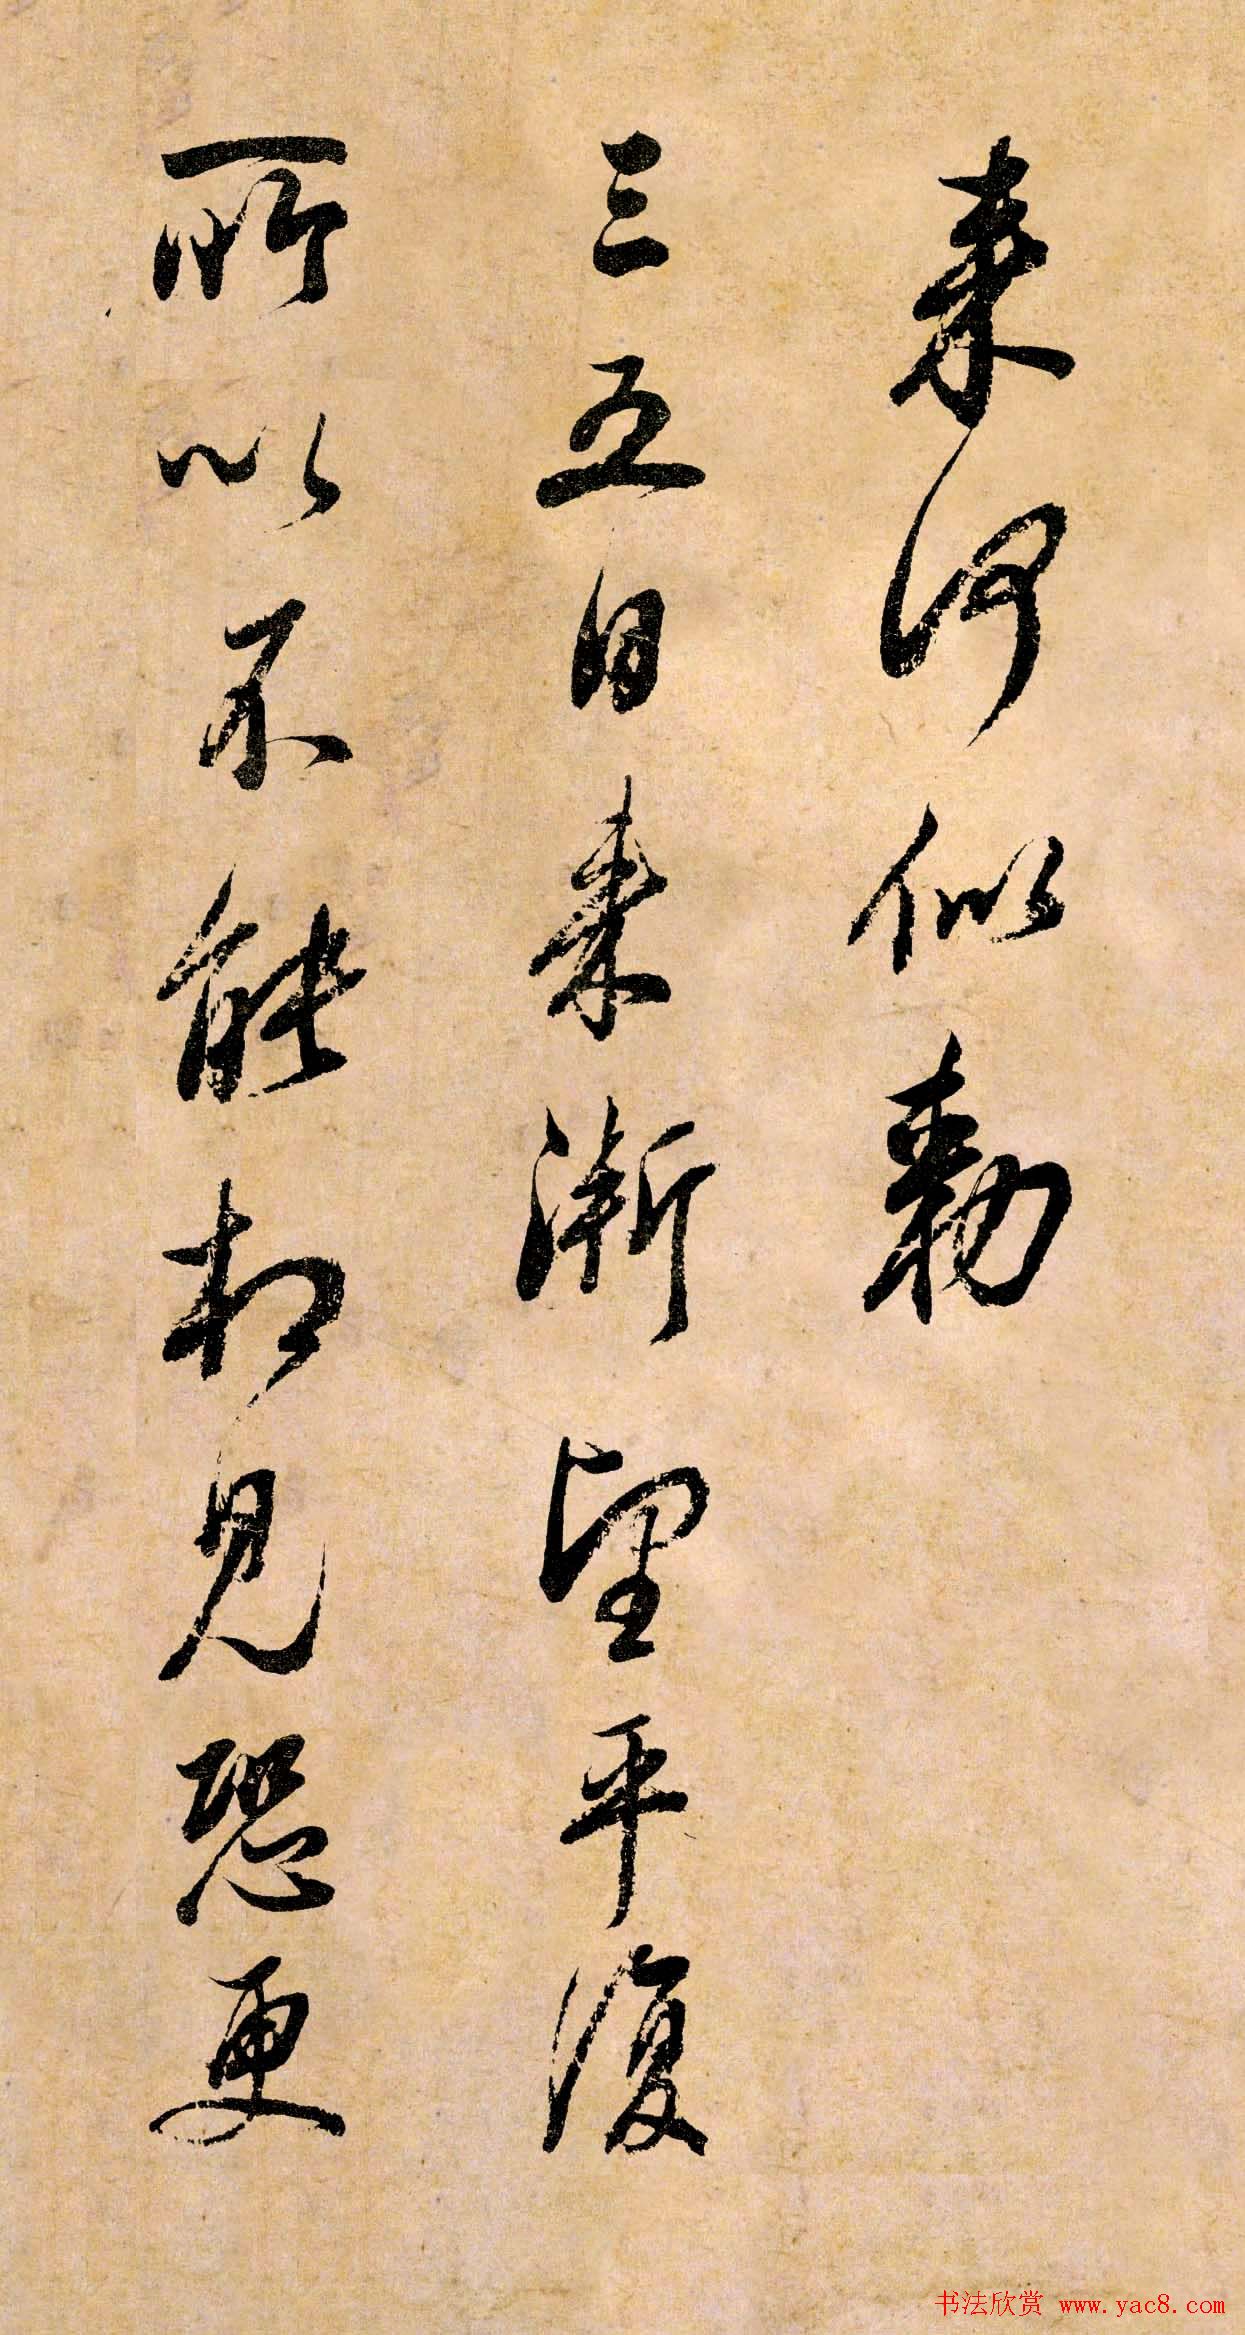 来何似勅
三五日来漸望平復
所以不能相見恐更
书法欣赏 www.yac8.com